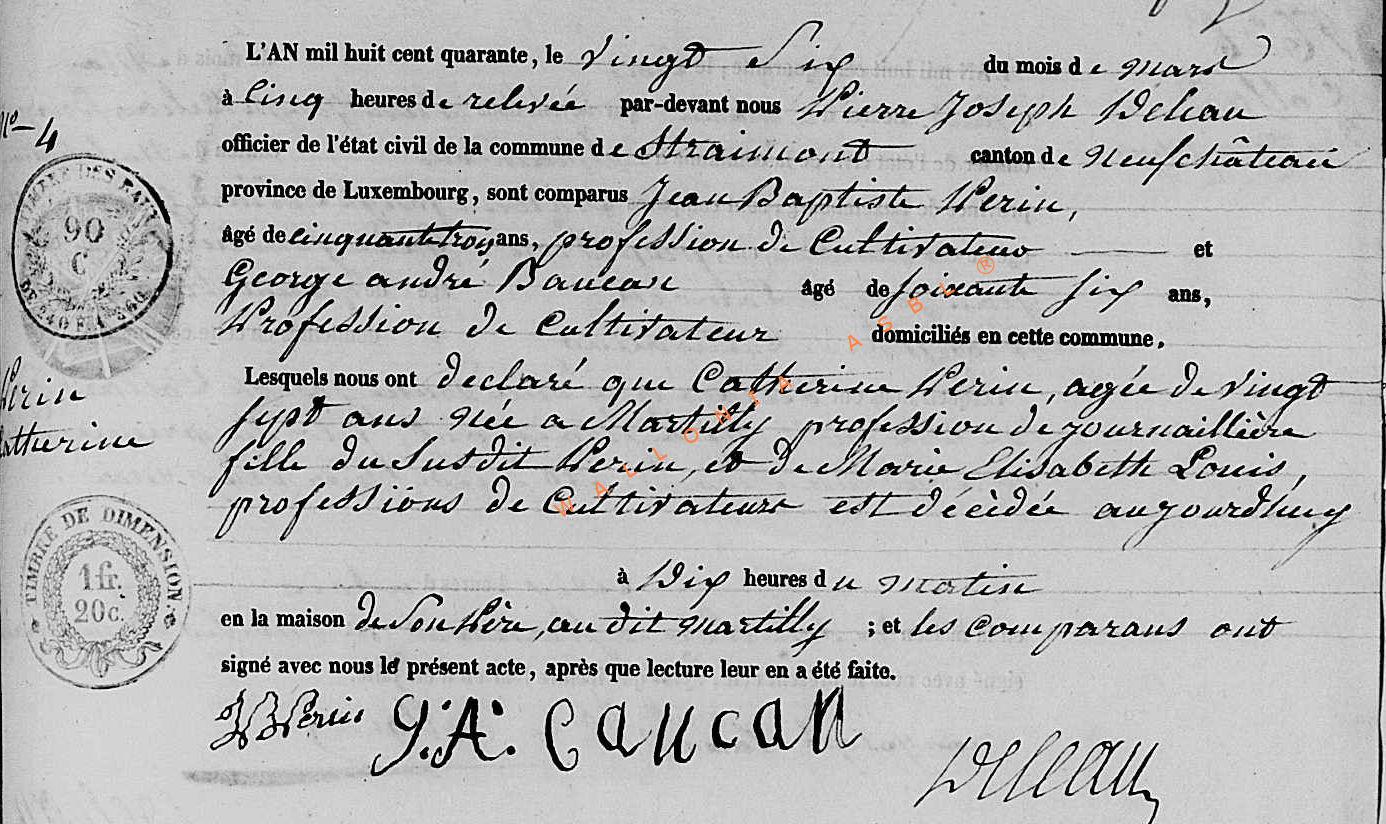 L'AN mil huit cent quarante, le vingt Six du mois de mars
à Cinq heures de relevée par-devant nous Pierre Joseph Deleau
officier de l'état civil de la commune de Straimont canton de Neufchâteau
province de Luxembourg, sont comparus Jean Baptiste Perin,
âgé de cinquante troy ans, profession de Cultivateur et
George andré âgé de soixante six ans,
Profession de Cultivateur domiciliés en cette commune.
Lesquels nous ont declaré que Catherine Perin, agée de vingt
sept ans née a Martilly profession de journaillière
fille du Susdit Perin, et de Marie Elisabeth Louis,
professions de Cultivateurs est décèdée aujourdhuy
à Dix heures du matin
en la maison de Son Père, au dit Martilly ; et les comparans ont
signé avec nous le présent acte, après que lecture leur en a été faite.
JB Perin G. A. Caucan
Deleau
No 4
90
C
Perin
Catherine
TIMBRE DE DIMENSION
1 fr.
20 c.
WALLONIA ASBL ®